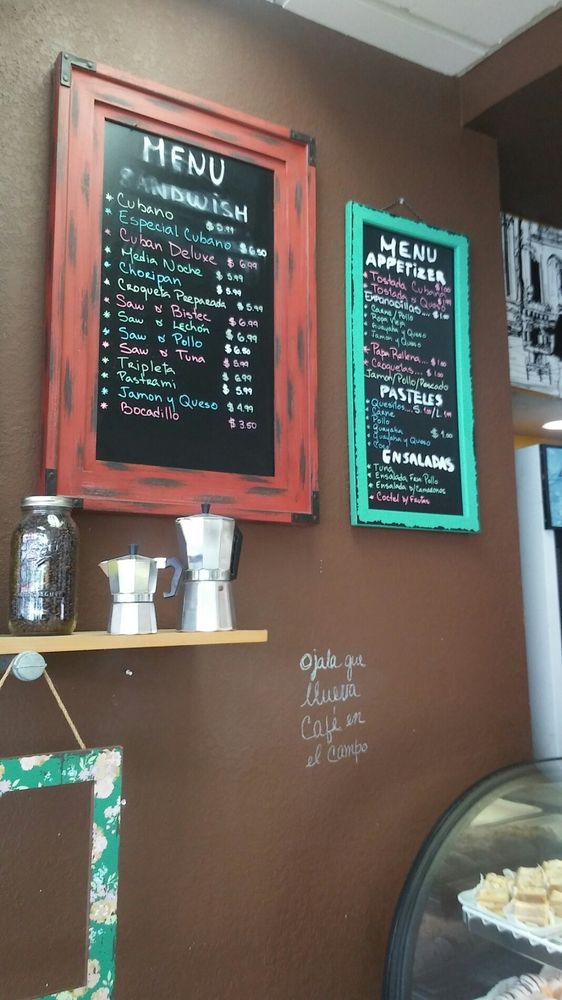 MENU
SANDWISH
* Cubano
* Especial Cubano $6.50
* Cuban Deluxe $6.99
* Media Noche $5.99
* Choripan $5.99
* Croqueta Preparada $5.99
* Saw d Bistec $6.99
* Saw d Lechón $6.99
* Saw d Pollo $6.50
* Saw d Tuna $5.99
* Tripleta $6.99
* Pastrami $5.99
* Jamon y Queso $4.99
* Bocadillo $3.50
MENU
APPETIZER
* Tostada Cubana $1.00
* Tostada d Queso
Empanadillas... $1.00
* Carne/Pollo
* Ropa Vieja
* Guayaba y Queso
* Jamon y Queso
* Papa Rellena... $1.00
* Croquetas.... $1.00
Jamon/Pollo/Pescado
PASTELES
* Quesitos...
* Carne
* Pollo
* Guayaba $1.00
* Guayaba y Queso
* Coco
ENSALADAS
* Tuna
* Ensalada Pollo
* Ensalada d/Camarones
* Coctel d/Frutas
Ojala que
llueva
Café en
el campo